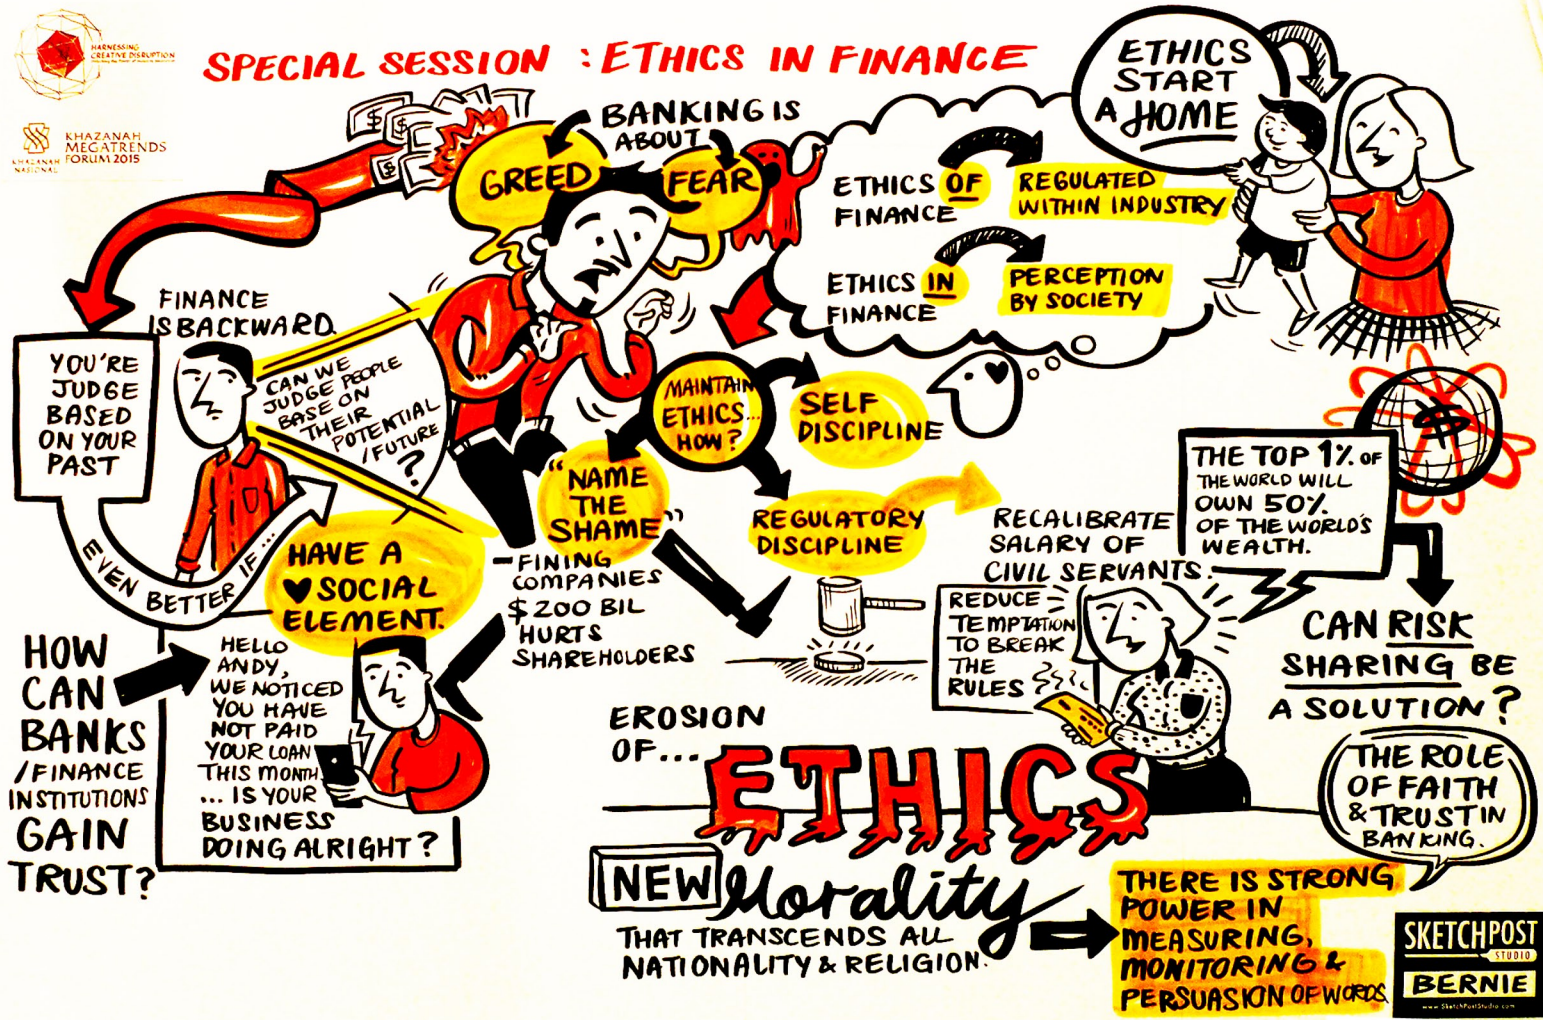 HARNESSING
CREATIVE DISRUPTION
KHAZANAH
NASIONAL
KHAZANAH
MEGATRENDS
FORUM 2015
SPECIAL SESSION : ETHICS IN FINANCE
BANKING IS
ABOUT
GREED
FEAR
ETHICS OF
FINANCE
REGULATED
WITHIN INDUSTRY
ETHICS IN
FINANCE
PERCEPTION
BY SOCIETY
ETHICS
START
A HOME
FINANCE
IS BACKWARD.
YOU'RE
JUDGE
BASED
ON YOUR
PAST
CAN WE
JUDGE PEOPLE
BASE ON
THEIR
POTENTIAL
/FUTURE
?
EVEN BETTER IF...
HAVE A
♥ SOCIAL
ELEMENT.
MAINTAIN
ETHICS...
HOW?
SELF
DISCIPLINE
"NAME
THE
SHAME"
- FINING
COMPANIES
$200 BIL
HURTS
SHAREHOLDERS
REGULATORY
DISCIPLINE
RECALIBRATE
SALARY OF
CIVIL SERVANTS.
REDUCE
TEMPTATION
TO BREAK
THE
RULES
$
THE TOP 1% OF
THE WORLD WILL
OWN 50%
OF THE WORLD'S
WEALTH.
CAN RISK
SHARING BE
A SOLUTION?
HOW
CAN
BANKS
/FINANCE
INSTITUTIONS
GAIN
TRUST?
HELLO
ANDY,
WE NOTICED
YOU HAVE
NOT PAID
YOUR LOAN
THIS MONTH
... IS YOUR
BUSINESS
DOING ALRIGHT?
EROSION
OF...
ETHICS
NEW Morality
THAT TRANSCENDS ALL
NATIONALITY & RELIGION.
THE ROLE
OF FAITH
& TRUST IN
BANKING.
THERE IS STRONG
POWER IN
MEASURING,
MONITORING &
PERSUASION OF WORDS
SKETCHPOST
STUDIO
BERNIE
www.SketchPostStudio.com